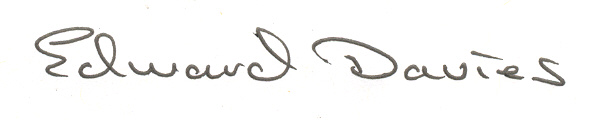 Edward Davies